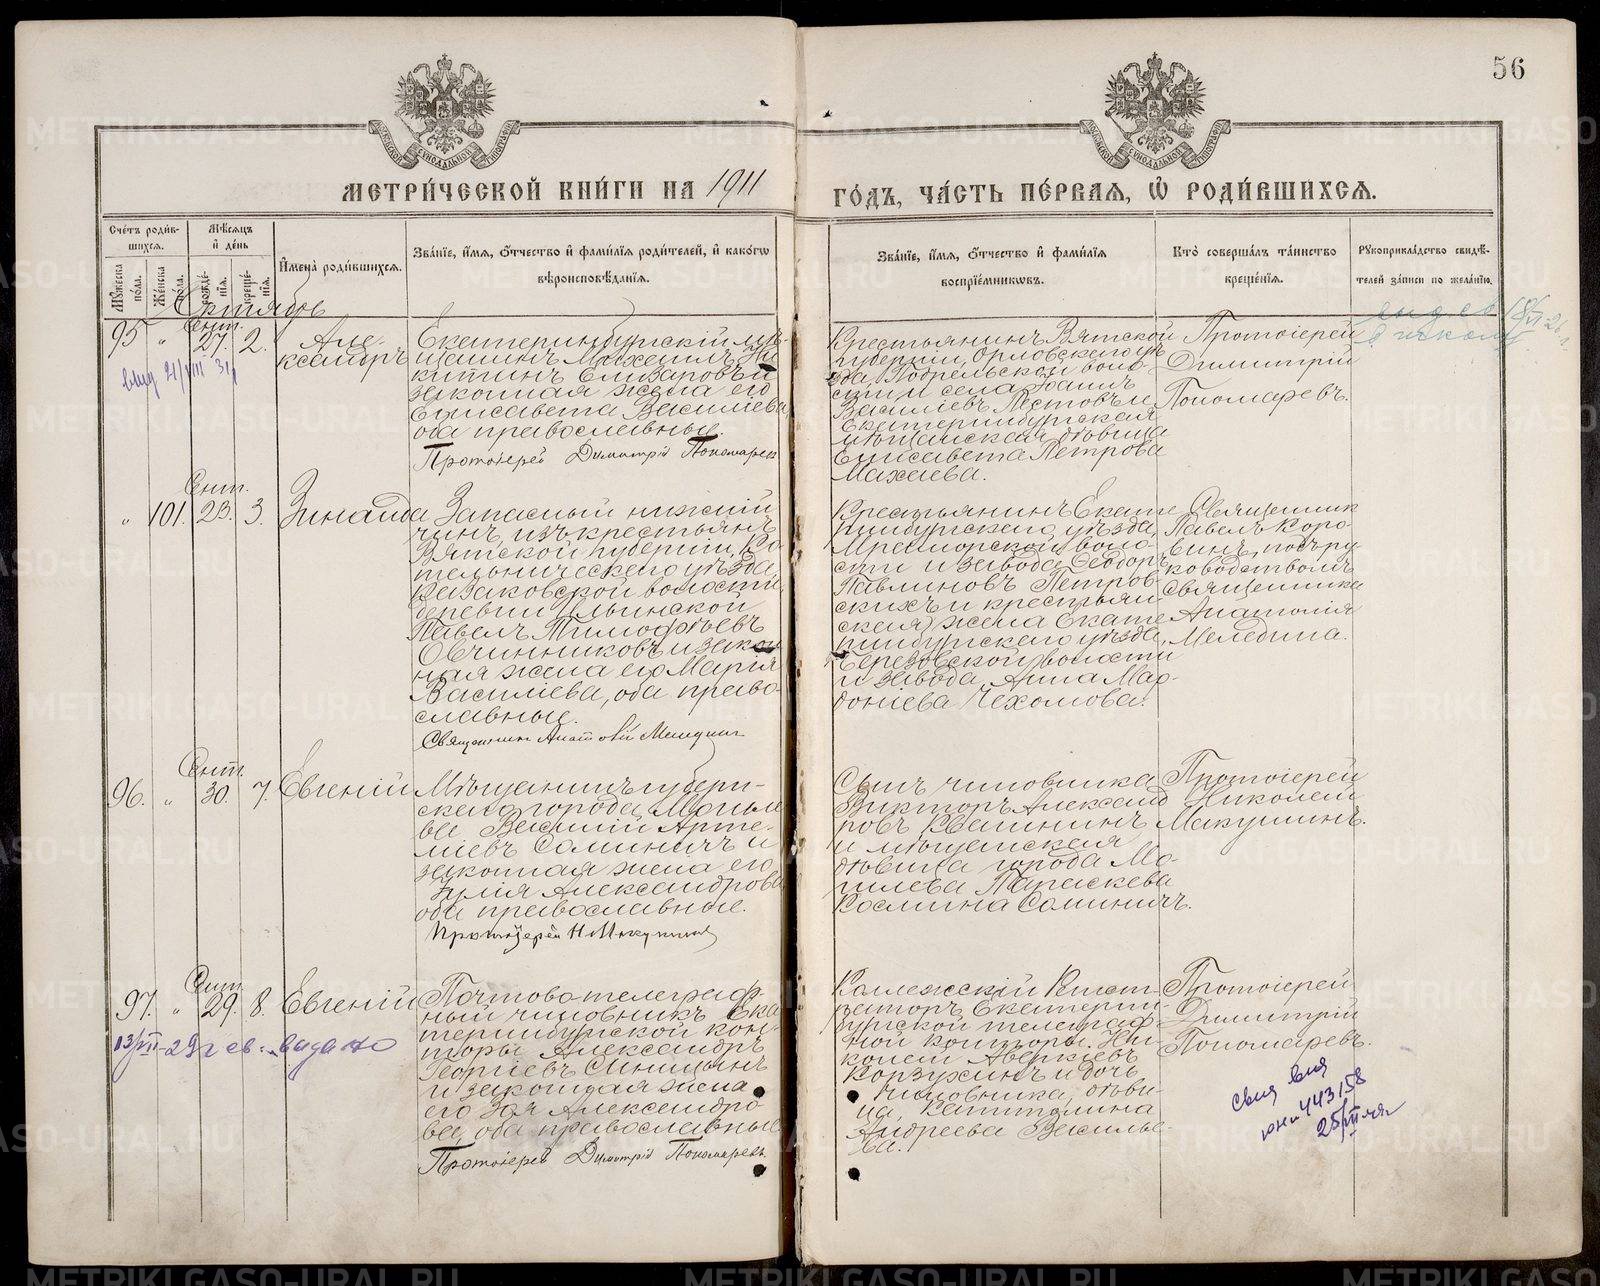 56
МОСКОВСКОЙ СѴНОДАЛЬНОЙ ТИПОГРАФІИ
МОСКОВСКОЙ СѴНОДАЛЬНОЙ ТИПОГРАФІИ
МЕТРИ́ЧЕСКОЙ КНИ́ГИ НА 1911
ГО́ДЪ, ЧА́СТЬ ПЕ́РВАѦ, Ѡ҆ РОДИ́ВШИХСѦ.
Сче́тъ роди́в-
шихсѧ.
Мꙋ́жеска
по́ла.
Же́нска
по́ла.
Мѣ́сѧцъ
и҆ де́нь
рожде́-
нїѧ.
креще́-
нїѧ.
И҆мена̀ роди́вшихсѧ.
Зва́нїе, и҆́мѧ, ѻ҆́тчество и҆ фами́лїѧ роди́телей, и҆ како́гѡ
вѣроисповѣ́данїѧ.
Зва́нїе, и҆́мѧ, ѻ҆́тчество и҆ фами́лїѧ
воспрїе́мникѡвъ.
Кто̀ соверша́лъ та́инство
креще́нїѧ.
Рꙋкоприкла́дство свидѣ́-
телей за́писи по жела́нїю.
Октябрь
95 " Сент. 27. 2. Але-
ксандръ
Екатеринбургскій мѣ-
щанинъ Михаилъ Ни-
китинъ Елизаровъ и
законная жена его
Елисавета Василіева,
оба православные.
Протоіерей Димитрій Пономарев
Крестьянинъ Вятской
губерніи, Орловскаго уѣ-
зда, Подрельской воло-
сти и села Іоаннъ
Василіевъ Пестовъ и
Екатеринбургская
мѣщанская дѣвица
Елисавета Петрова
Махаева.
Протоіерей
Димитрій
Пономаревъ.
" 101. Сент. 23. 3. Зинаида
Запасный нижній
чинъ, изъ крестьянъ
Вятской губерніи, Ко-
тельническаго уѣзда,
Казаковской волости,
деревни Ильинской
Павелъ Тимофѣевъ
Овчинниковъ и закон-
ная жена его Марія
Василіева, оба право-
славные.
Священник Анатолій Меледин
Крестьянинъ Екате-
ринбургскаго уѣзда,
Мраморской воло-
сти и завода Ѳеодоръ
Павлиновъ Петров-
скихъ и крестьян-
ская жена Екате-
ринбургскаго уѣзда,
Березовской волости
и завода Анна Мар-
доніева Чехомова.
Священник
Павелъ Коро-
винъ, подъ ру-
ководствомъ
Священника
Анатолія
Меледина.
96. " Сент. 30. 7. Евгеній
Мѣщанинъ губерн-
скаго города Могиле-
ва Василій Арте-
міевъ Соминичъ и
законная жена его
Юлія Александрова
оба православные.
Протоіерей Н Макушинъ
Сынъ чиновника
Викторъ Александ
ровъ Квашнинъ
и мѣщанская
дѣвица города Мо-
гилева Параскева
Космина Соминичъ.
Протоіерей
Николай
Макушинъ.
97. " Сент. 29. 8. Евгеній
13/VII-29 г св. выдано
Почтово телеграф-
ный чиновникъ Ека
теринбургской кон-
торы Александръ
Георгіевъ Синицынъ
и законная жена
его Зоя Александро-
ва, оба православные.
Протоіерей Димитрій Пономаревъ
Коллежскій Регист-
раторъ Екатерин-
бургской телеграф-
ной конторы. Ни-
колай Аверкіевъ
Корзухинъ и дочь
чиновника, дѣви-
ца, Капитолина
Андреева Василье-
ва.
Протоіерей
Димитрій
Пономаревъ.